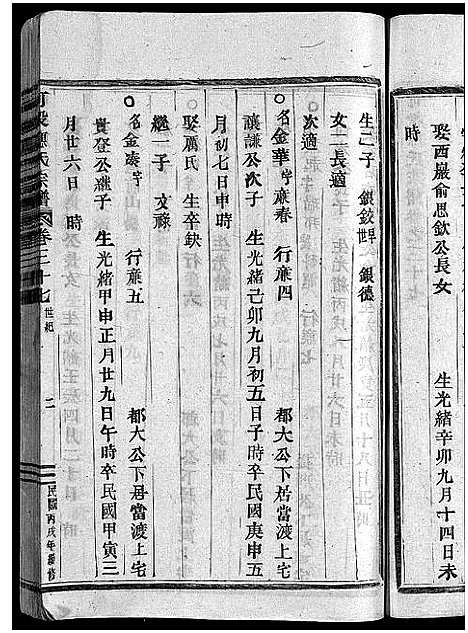 娶西巖俞思欽公長女　生光緒辛卯九月十四日未
時
生三子　銀銨　銀德
女二長適
次適
○名金華字　春　行　四　都大公下居當渡上宅
讓謙公次子　生光緒己卯九月初五日子時卒民國庚申五
月初七日申時
娶厲氏　生卒缺
繼一子　文祿
○名金　字　行　五　都大公下居當渡上宅
貴登公繼子　生光緒甲申正月廿九日午時卒民國甲寅三
月廿六日時
氏宗譜　卷三十七　世紀　二　民國丙戌年續修